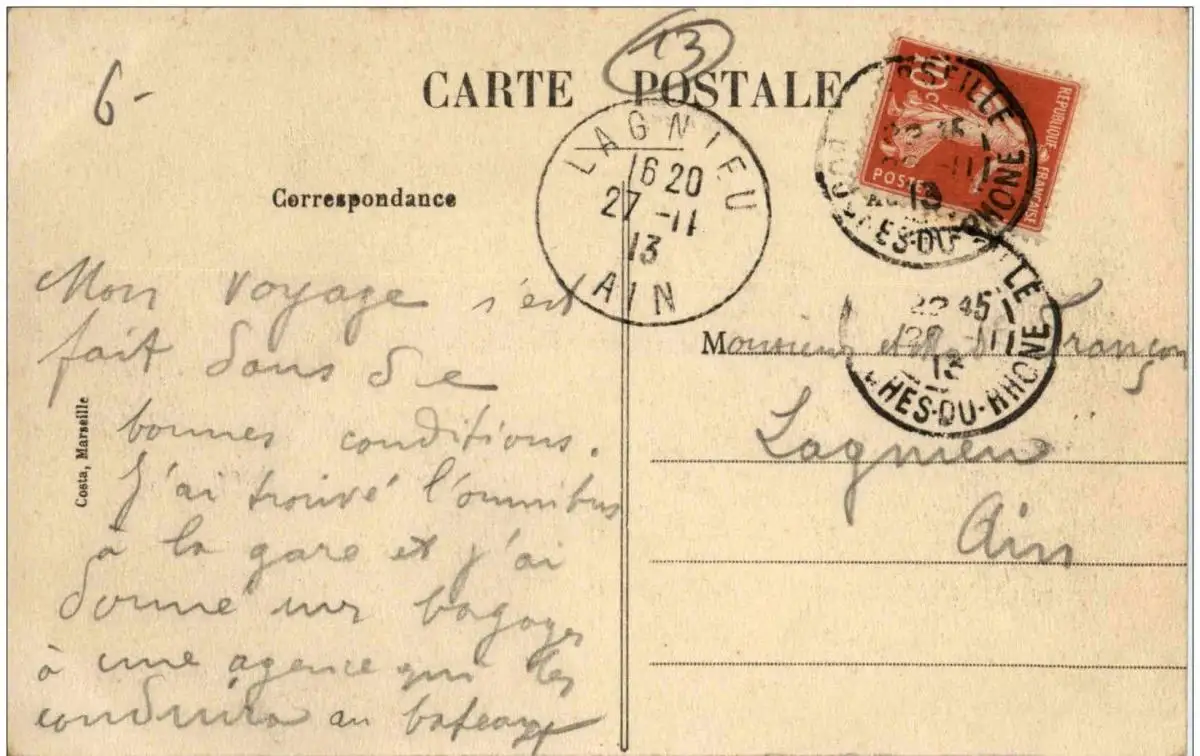 13
6-
CARTE POSTALE
Correspondance
LAGNIEU
16 20
27 -11
13
AIN
10 C
REPUBLIQUE FRANÇAISE
POSTES
22 45
-11
13
LE
22 45
-11
13
CHES-DU-RHONE
Mon voyage s'est
fait dans de
bonnes conditions.
J'ai trouvé l'omnibus
à la gare et j'ai
donné mes bagages
à une agence qui les
conduira au bateau
Costa, Marseille
Monsieur et Françon
Lagnieu
Ain